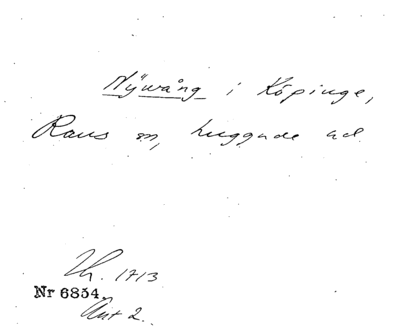 Nÿwång i Köpinge,
Raus sn, huggude ad
Th. 1713
Nr 6854.
Ant 2.